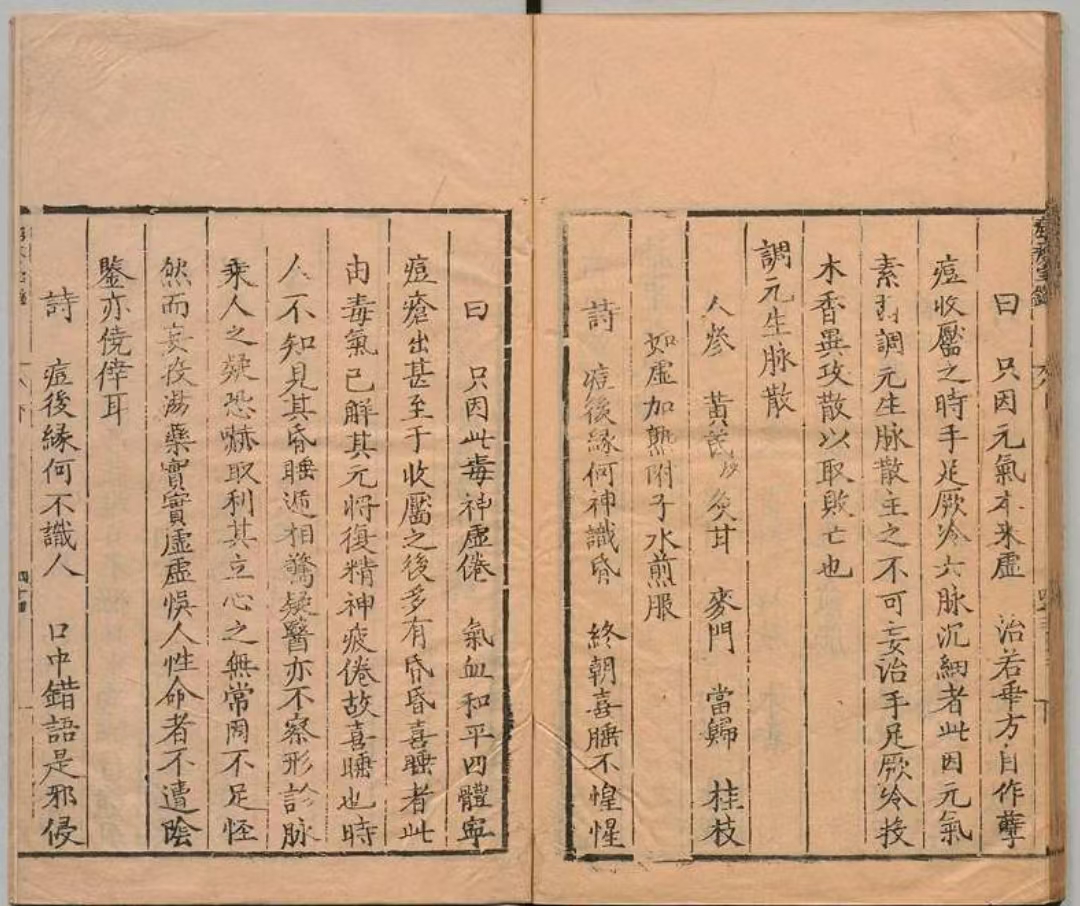 曰　只因元氣本来虛　治若乖方自作孽
痘收靨之時手足厥冷六脉沉細者此因元氣
素弱調元生脉散主之不可妄治手足厥冷投
木香異攻散以取敗亡也
調元生脉散
人參　黃芪　炙甘　麥門　當歸　桂枝
如虛加熟附子水煎服
詩　痘後緣何神識昏　終朝喜睡不惺惺
曰　只因此毒神虛倦　氣血和平四體寧
痘瘡出甚至于收靨之後多有昏昏喜睡者此
由毒氣已解其元将復精神疲倦故喜睡也時
人不知見其昏睡遞相驚疑醫亦不察形診脉
乘人之疑恐嚇取利其立心之無常固不足怪
然而妄投湯藥實實虛虛悞人性命者不遭陰
鑒亦僥倖耳
詩　痘後緣何不識人　口中錯語是邪侵